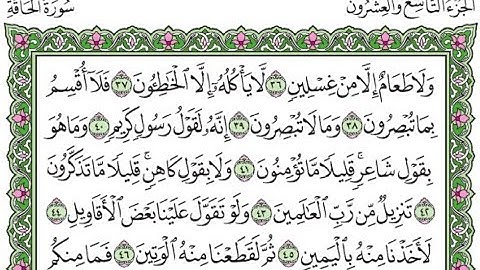 الجزء التاسع والعشرون سورة الحاقة
وَلَا طَعَامٌ إِلَّا مِنْ غِسْلِينٍ ٣٦ لَّا يَأْكُلُهُ إِلَّا الْخَاطِئُونَ ٣٧ فَلَا أُقْسِمُ
بِمَا تُبْصِرُونَ ٣٨ وَمَا لَا تُبْصِرُونَ ٣٩ إِنَّهُ لَقَوْلُ رَسُولٍ كَرِيمٍ ٤٠ وَمَا هُوَ
بِقَوْلِ شَاعِرٍ ۚ قَلِيلًا مَّا تُؤْمِنُونَ ٤١ وَلَا بِقَوْلِ كَاهِنٍ ۚ قَلِيلًا مَّا تَذَكَّرُونَ
٤٢ تَنزِيلٌ مِّن رَّبِّ الْعَالَمِينَ ٤٣ وَلَوْ تَقَوَّلَ عَلَيْنَا بَعْضَ الْأَقَاوِيلِ ٤٤
لَأَخَذْنَا مِنْهُ بِالْيَمِينِ ٤٥ ثُمَّ لَقَطَعْنَا مِنْهُ الْوَتِينَ ٤٦ فَمَا مِنكُم